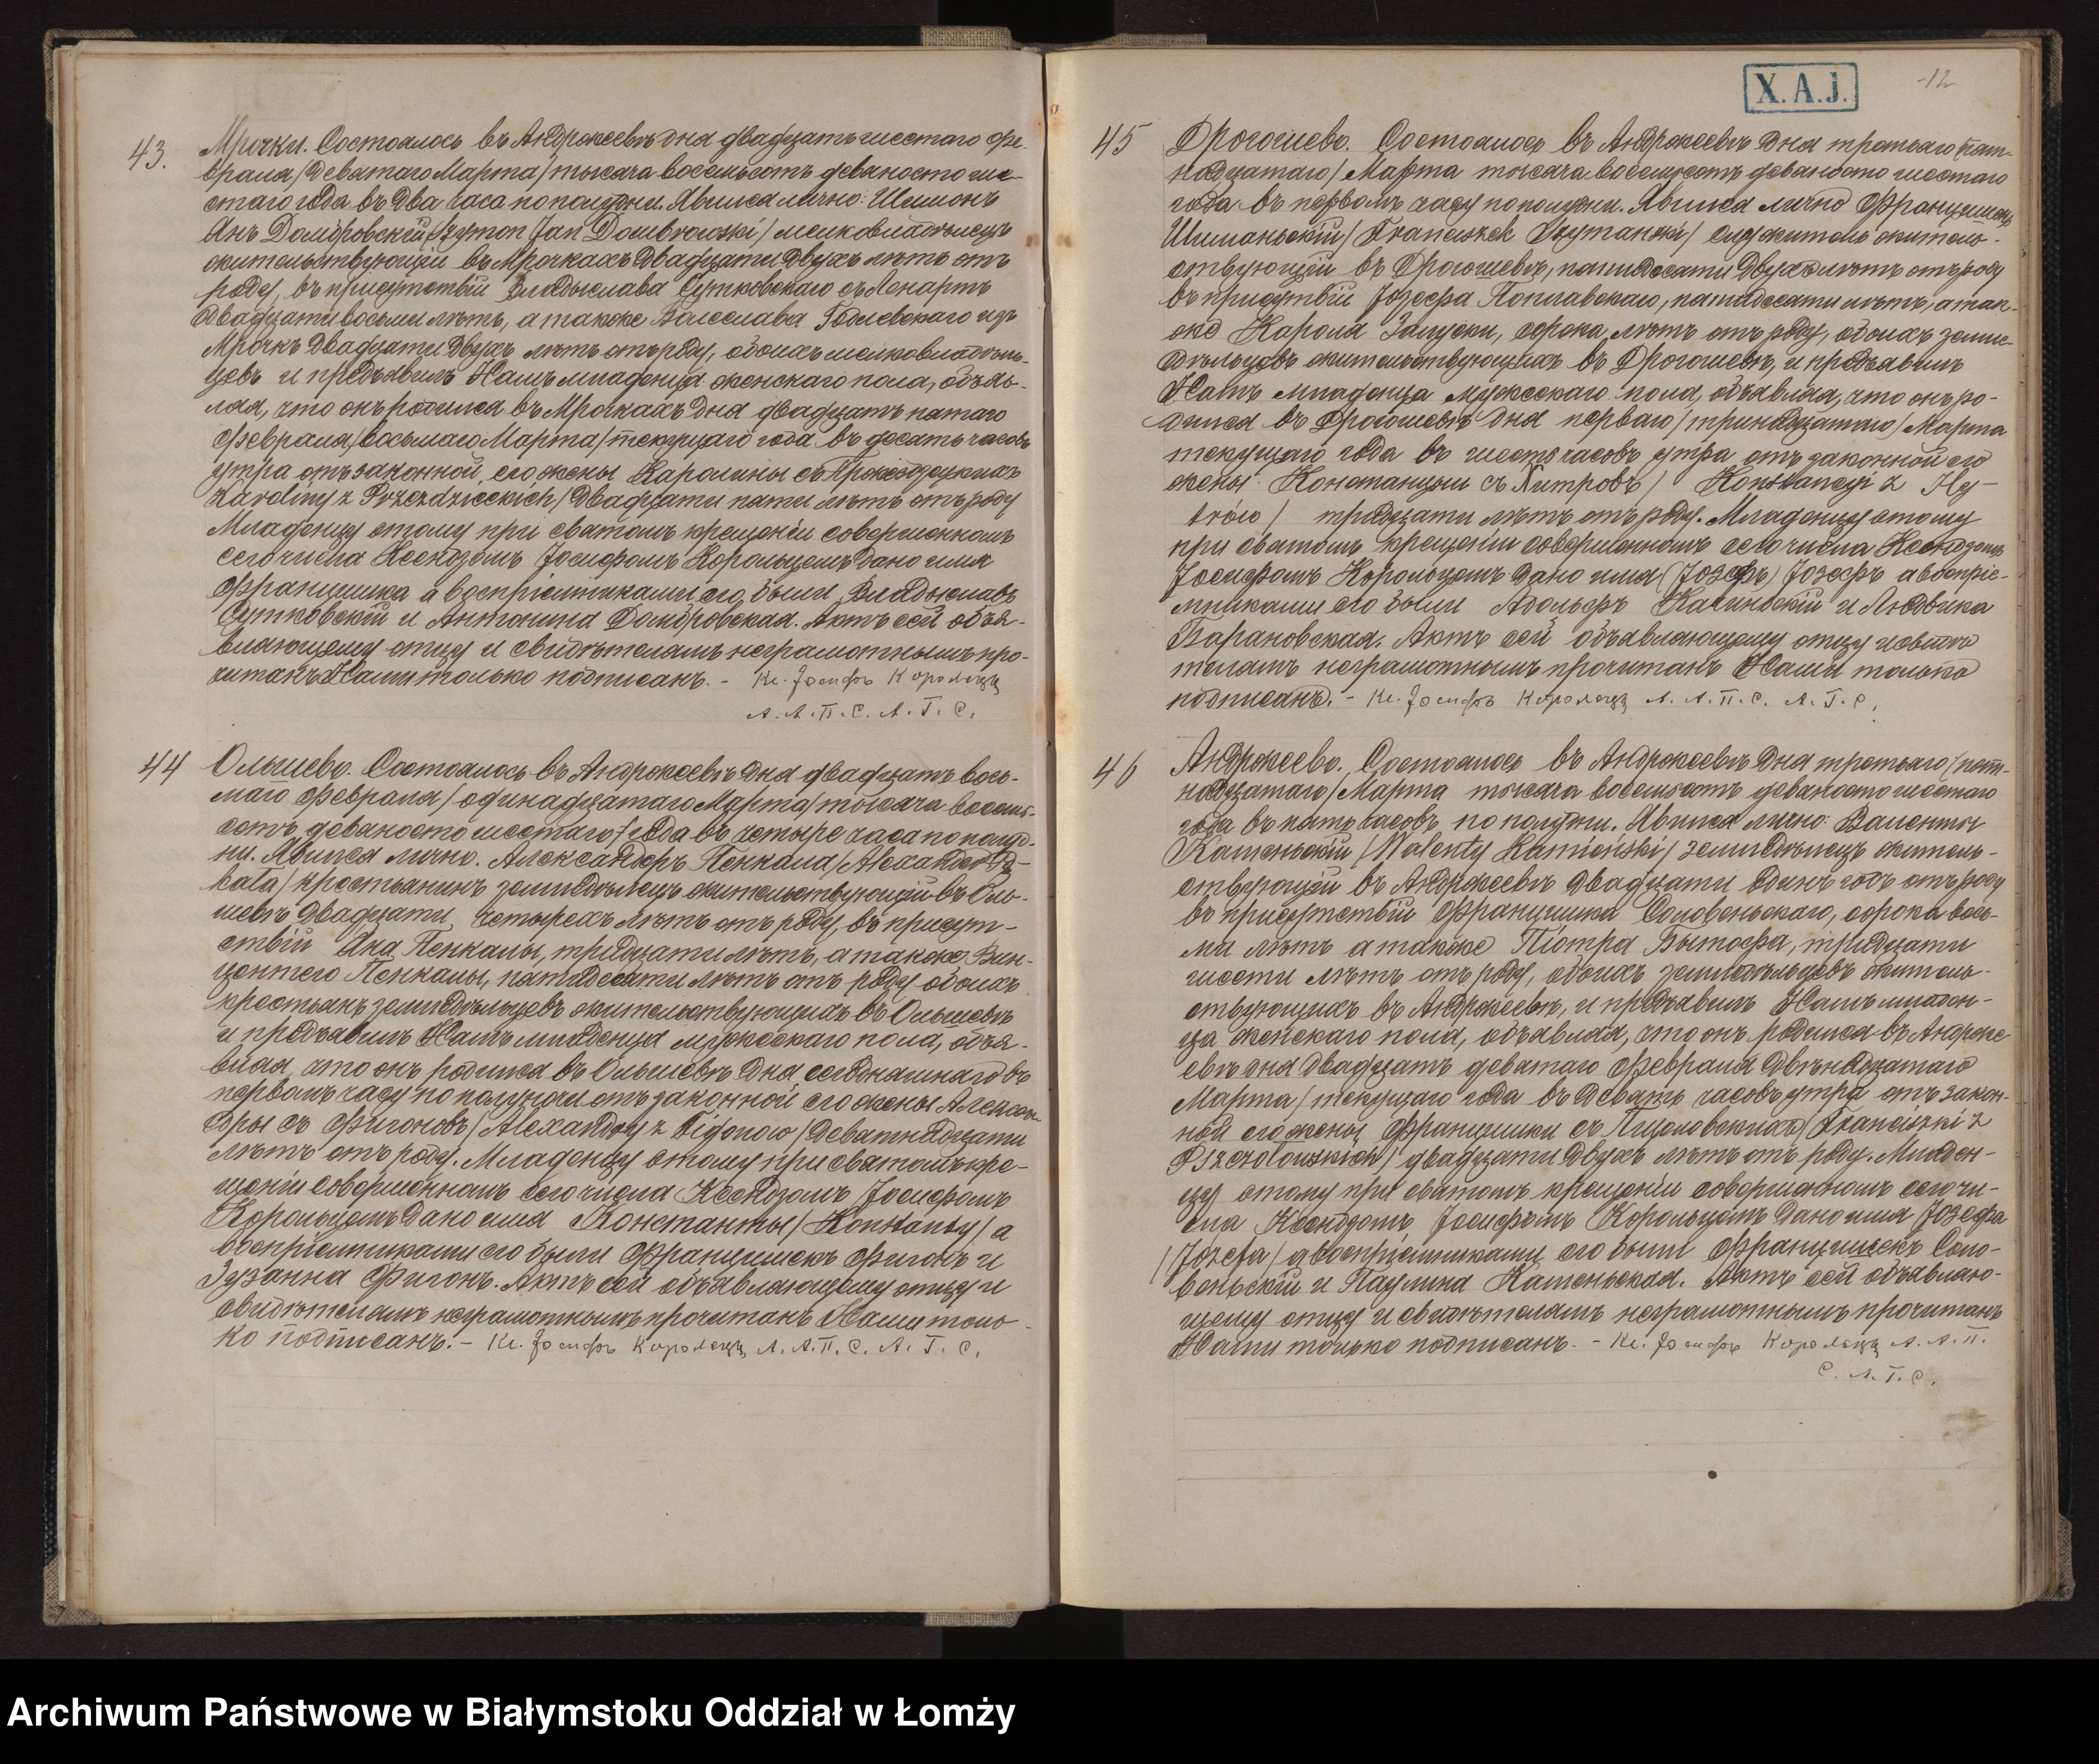 43.
Мрочки. Состоялось въ Андржеевѣ дня двадцать шестаго Фе-
враля /девятаго Марта/ тысяча восемьсотъ девяносто ше-
стаго года въ два часа по полудни. Явился лично: Шимонъ
Янъ Домбровскій /Szymon Jan Dombrowski/ мелковладѣлецъ
жительствующій въ Мрочкахъ двадцати двухъ лѣтъ отъ
роду, въ присутствіи Владыслава Сутковскаго съ Ленартъ
двадцати восьми лѣтъ, а также Болеслава Годлевскаго изъ
Мрочкъ двадцати двухъ лѣтъ отъ роду, обоихъ мелковладѣль-
цевъ и предъявилъ Намъ младенца женскаго пола, объяв-
ляя, что онъ родился въ Мрочкахъ дня двадцать пятаго
Февраля /восьмаго Марта/ текущаго года въ десять часовъ
утра отъ законной его жены Каролины съ
Karoliny z Przezdzieckich /двадцати пяти лѣтъ отъ роду
Младенцу этому при святомъ крещеніи совершенномъ
сего числа Ксендзомъ Іосифомъ Корольцемъ дано имя
Францишка а воспріемниками его были Владыславъ
Сутковскій и Антонина Домбровская. Актъ сей объя-
вляющему отцу и свидѣтелямъ неграмотнымъ про-
читанъ Нами только подписанъ. - Кс. Іосифъ Корольцъ
А. А. П. С. А. Г. С.
44
Ольшево. Состоялось въ Андржеевѣ дня двадцать вось-
маго Февраля /одинадцатаго Марта/ тысяча восемь-
сотъ девяносто шестаго года въ четыре часа по полуд-
ни. Явился лично. Александеръ Пенкала /Alexander
kala/ крестьянинъ земледѣлецъ жительствующій въ Оль-
шевѣ двадцати четырехъ лѣтъ отъ роду, въ присут-
ствіи Яна Пенкалы, тридцати лѣтъ, а также Вин-
центего Пенкалы, пятидесяти лѣтъ отъ роду обоихъ
крестьянъ земледѣльцевъ жительствующихъ въ Ольшевѣ
и предъявилъ Намъ младенца мужескаго пола, объя-
вляя, что онъ родился въ Ольшевѣ дня сегодняшняго въ
первомъ часу по полуночи отъ законной его жены Алексан-
дры съ Фигоновъ /Alexandry z Figonow/ девятнадцати
лѣтъ отъ роду. Младенцу этому при святомъ кре-
щеніи совершенномъ сего числа Ксендзомъ Іосифомъ
Корольцемъ дано имя Константы /Konstanty/ а
воспріемниками его были Францишекъ Фигонъ и
Зузанна Фигонъ. Актъ сей объявляющему отцу и
свидѣтелямъ неграмотнымъ прочитанъ Нами толь-
ко подписанъ. - Кс. Іосифъ Корольцъ А. А. П. С. А. Г. С.
X.A.J.
12
45
Дрогошево. Состоялось въ Андржеевѣ дня третьяго /пят-
надцатаго/ Марта тысяча восемьсотъ девяносто шестаго
года въ первомъ часу по полудни. Явился лично Францишекъ
Шиманьскій /Franciszek Szymanski/ служитель житель-
ствующій въ Дрогошевѣ, пятидесяти двухъ лѣтъ отъ роду
въ присутвіи Іозефа Поплавскаго, пятидесяти лѣтъ, а так-
же Кароля Залуски, сорока лѣтъ отъ роду, обоихъ земле-
дѣльцовъ жительствующихъ въ Дрогошевѣ, и предъявилъ
Намъ младенца мужескаго пола, объявляя, что онъ ро-
дился въ Дрогошевѣ дня перваго /тринадцатаго/ Марта
текущаго года въ шесть часовъ утра отъ законной его
жены Констанции съ Хитровъ / Konstancyi z Hy-
trów / тридцати лѣтъ отъ роду. Младенцу этому
при святомъ крещеніи совершенномъ сего числа Ксендзомъ
Іосифомъ Корольцемъ дано имя (Jозефъ) Jозефъ а воспріе-
мниками его были Адольфъ Качиньскій и Людвика
Барановская. Актъ сей объявляющему отцу и свидѣ
телямъ неграмотнымъ прочитанъ Нами только
подписанъ. - Кс. Іосифъ Корольцъ А. А. П. С. А. Г. С.
46
Андржеево. Состоялось въ Андржеевѣ дня третьяго /пят-
надцатаго/ Марта тысяча восемьсотъ девяносто шестаго
года въ пять часовъ по полудни. Явился лично: Валенты
Каменьскій /Walenty Kamieński/ земледѣлецъ житель-
ствующій въ Андржеевѣ двадцати одинъ годъ отъ роду
въ присутствіи Францишка Соловеньскаго, сорока вось-
ми лѣтъ а также Піотра Вытосфа, тридцати
шести лѣтъ отъ роду, обоихъ земледѣльцевъ житель-
ствующихъ въ Андржеевѣ, и предъявилъ Намъ младен-
ца женскаго пола, объявляя, что онъ родился въ Андрже-
евѣ дня двадцать девятаго Февраля двѣнадцатаго
Марта / текущаго года въ девять часовъ утра отъ закон-
ной его жены Францишки съ Пщоловскихъ /Franciszki z
Pszczołowskich/ двадцати двухъ лѣтъ отъ роду. Младен-
цу этому при святомъ крещеніи совершенномъ сего чи-
сла Ксендзомъ Іосифомъ Корольцемъ дано имя Jозефа
/Józefa/ а воспріемниками его были Францишекъ Соло-
веньскій и Паулина Каменьская. Актъ сей объявляю-
щему отцу и свидѣтелямъ неграмотнымъ прочитанъ
Нами только подписанъ. - Кс. Іосифъ Корольцъ А. А. П.
С. А. Г. С.
Archiwum Państwowe w Białymstoku Oddział w Łomży